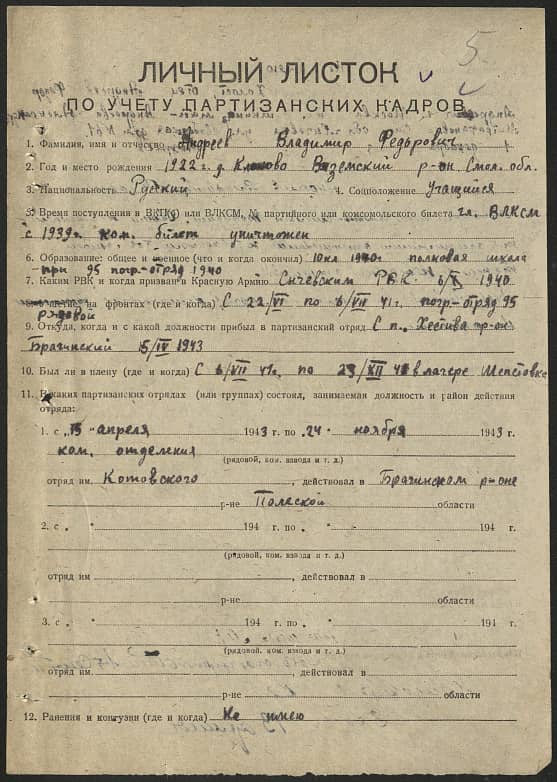 5.
ЛИЧНЫЙ ЛИСТОК
ПО УЧЕТУ ПАРТИЗАНСКИХ КАДРОВ
1. Фамилия, имя и отчество Андреев Владимир Федорович
2. Год и место рождения 1922 г. д. Вяземский р-он Смол. обл.
3. Национальность Русский 4. Соцположение Учащийся
5. Время поступления в ВКП(б) или ВЛКСМ, № партийного или комсомольского билета чл. ВЛКСМ
с 1939г. ком. билет уничтожен
6. Образование: общее и военное (что и когда окончил) 10 кл 1940г полковая школа
при 95 погр-отряд 1940
7. Каким РВК и когда призван в Красную Армию Сычевским РВК 6/X 1940
на фронтах (где и когда) С 22/VI по 6/VII 41г. погр-отряд 95
рядовой
9. Откуда, когда и с какой должности прибыл в партизанский отряд С п. р-он
Брагинский 15/IV 1943
10. Был ли в плену (где и когда) С 6/VII 41г. по 23/XII 41 в лагере Шепетовке
11. В каких партизанских отрядах (или группах) состоял, занимаемая должность и район действия
отряда:
1. с 15 апреля 1943 г. по 24 ноября 1943 г.
ком. отделения
(рядовой, ком. взвода и т. д.)
отряд им Котовского, действовал в Брагинском р-оне
р-не Полеской области
2. с „ " 194 г. по „ " 194 г.
(рядовой, ком. взвода и т. д.)
отряд им , действовал в
р-не области
3. с „ " 194 г. по „ " 194 г.
(рядовой, ком. взвода и т. д.)
отряд им , действовал в
р-не области
12. Ранения и контузии (где и когда) Не имею